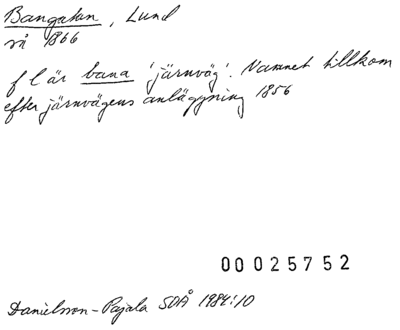 Bangatan, Lund
så 1866
f l är bana 'järnväg'. Namnet tillkom
efter järnvägens anläggning 1856
00025752
Danielsson-Pajala SOÅ 1984:10